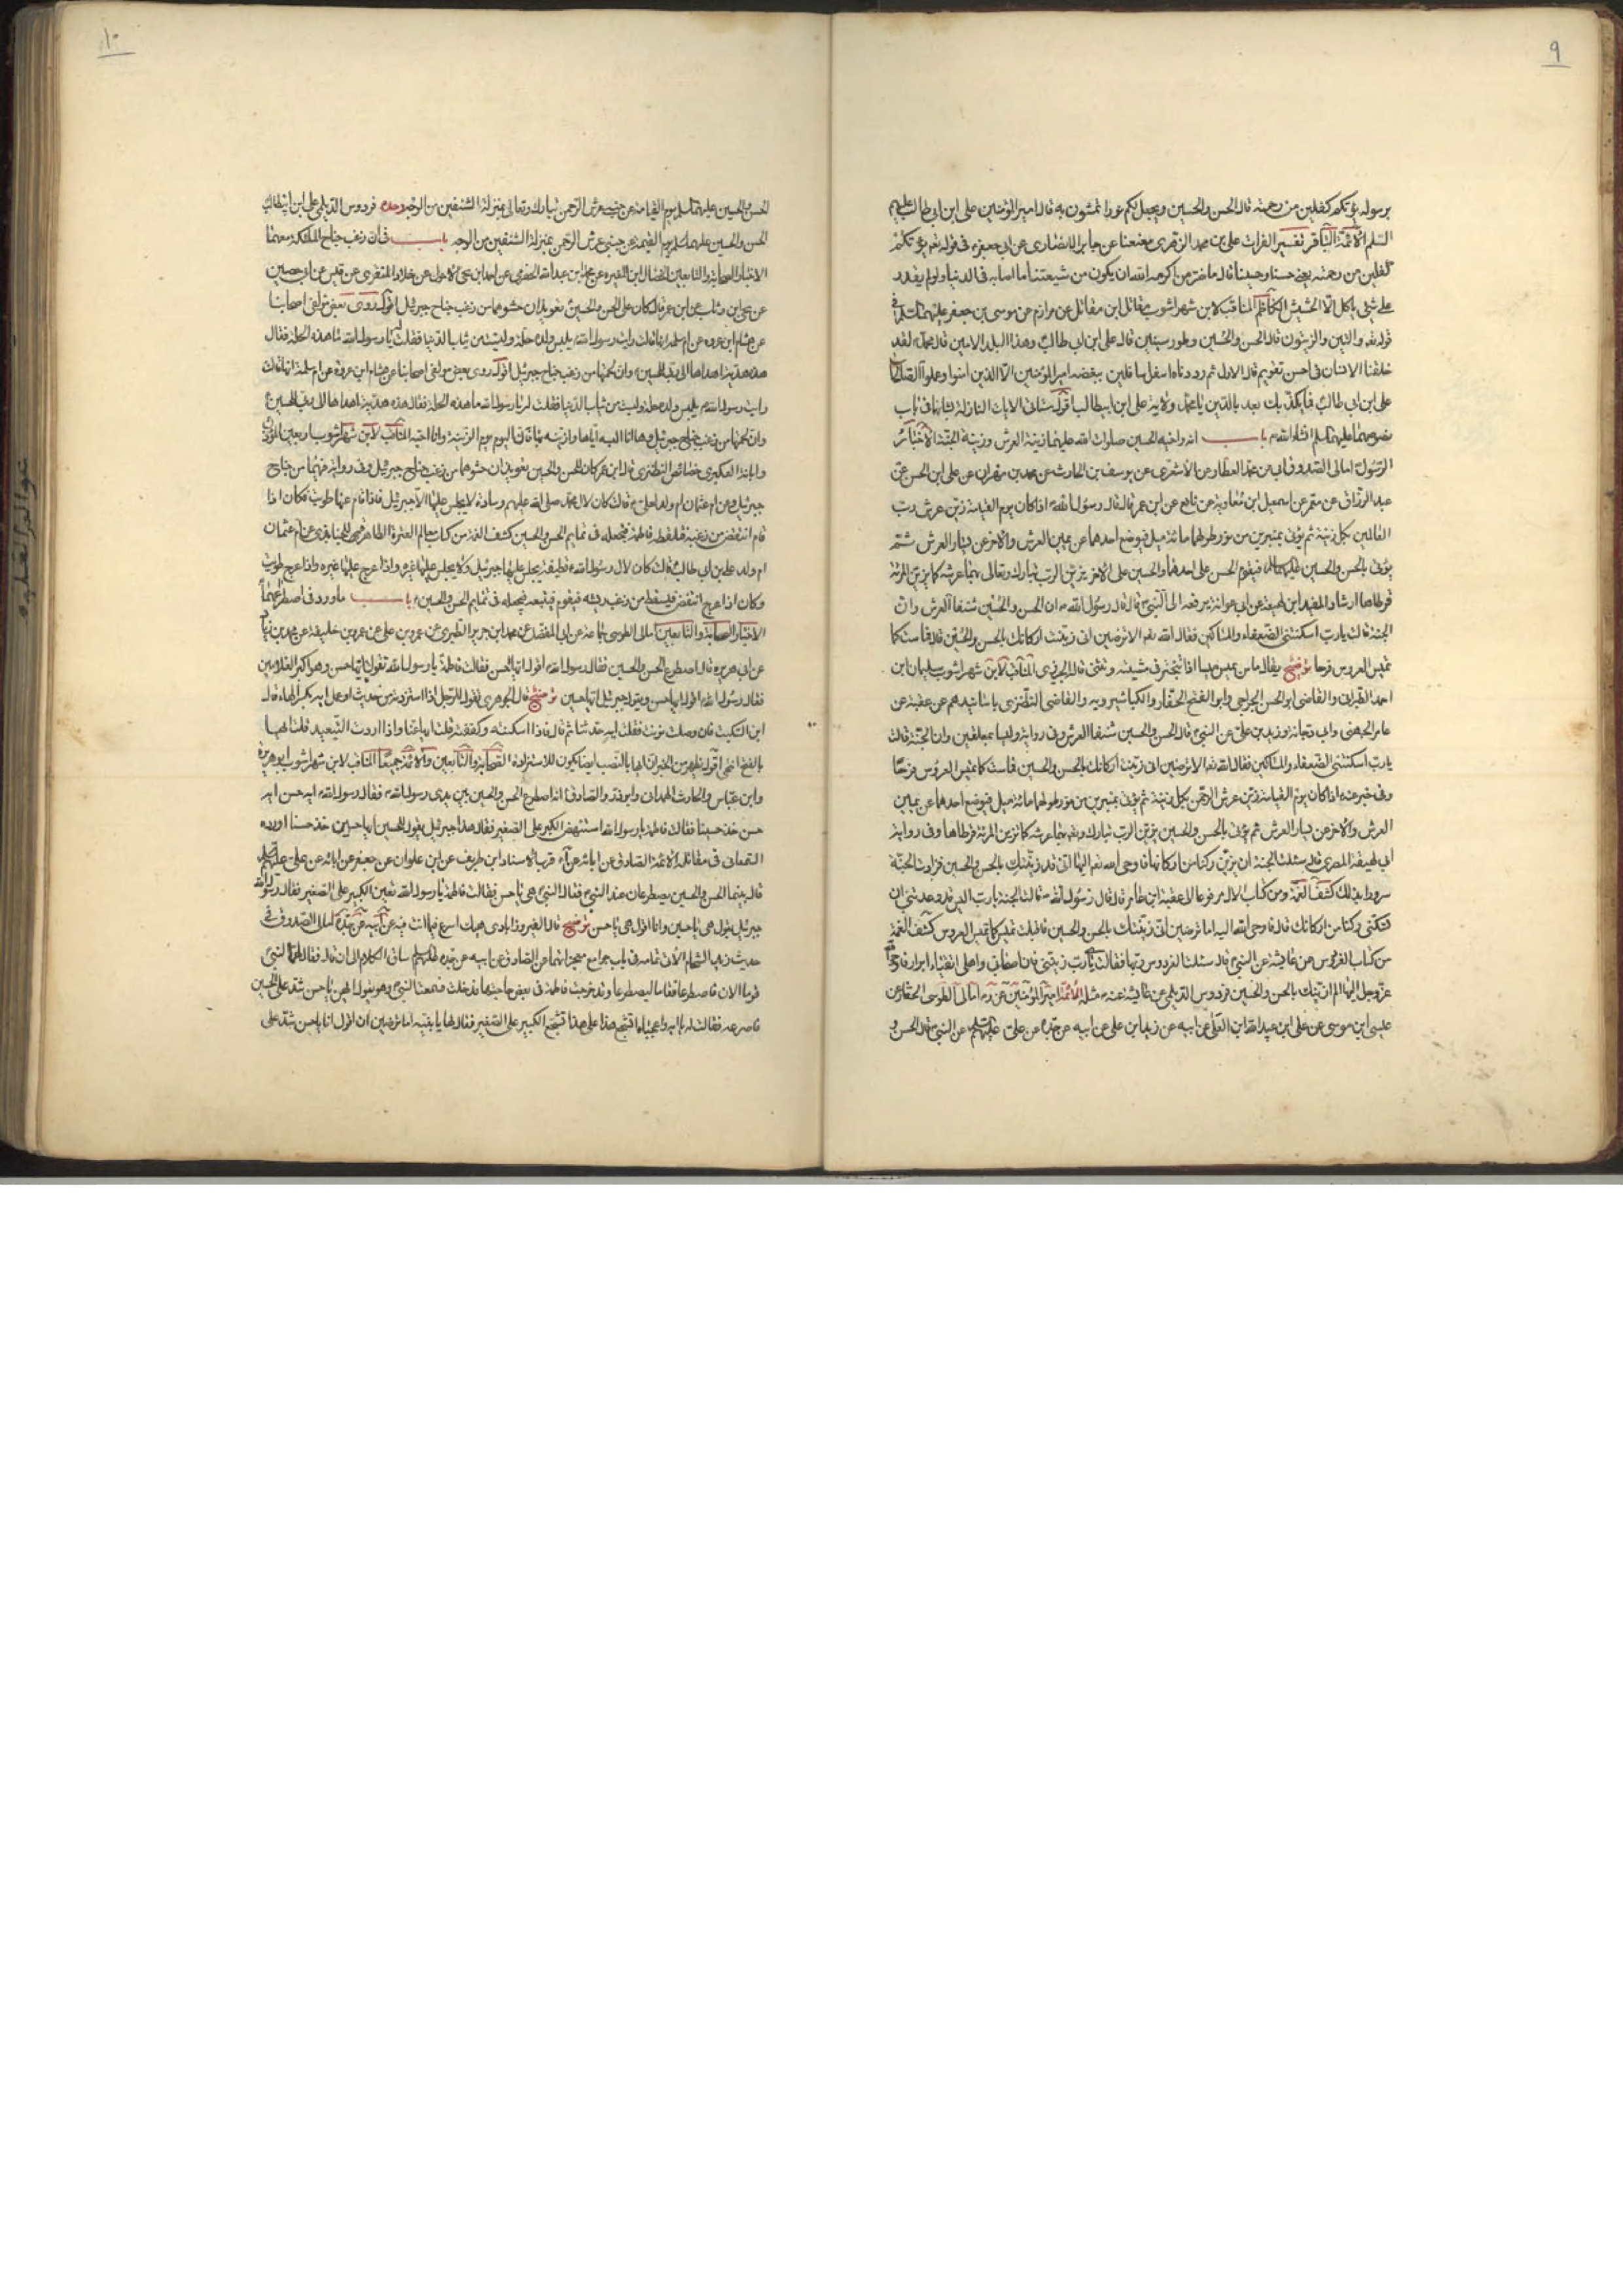 ٩
برسوله يؤتكم كفلين من رحمته قال الحسن والحسين ويجعل لكم نورا تمشون به قال امير المؤمنين علي ابن ابي طالب عليهم
السلم الأئمة الباقر تفسير الفرات علي بن محمد الزهري معنعنا عن جابر الانصاري عن ابي جعفر في قوله تعم يؤتكم
كفلين من رحمته يعني حسنا وحسينا قال ما ضر من اكرمه الله ان يكون من شيعتنا ما اصابه في الدنيا ولو لم يقدر
على شئ ياكله الا الحشيش الكاظم المناقب لابن شهراشوب مقاتل ابن مقاتل عن مرازم عن موسى بن جعفر عليهما السلم في
قوله تعم والتين والزيتون قال الحسن والحسين وطور سينين قال علي ابن ابي طالب وهذا البلد الامين قال محمد لقد
خلقنا الانسان في احسن تقويم قال الاول ثم رددناه اسفل سافلين ببغضه امير المؤمنين الا الذين امنوا وعملوا الصالحات
علي ابن ابي طالب فما يكذبك بعد بالدين يا محمد ولاية علي ابن ابيطالب اقول ستاتي الايات النازلة لشانهما في باب
نصوصهما عليهما السلم انشاء الله باب انه واخيه الحسين صلوات الله عليهما زينة العرش وزينة الجنة الأخبار
الرسول امالي الصدوق ابي عن محمد العطار عن الاشعري عن يوسف بن الحارث عن محمد بن مهران عن علي ابن الحسن عن
عبد الرزاق عن معمر عن اسمعيل ابن معاوية عن نافع عن ابن عمر قال قال رسول الله اذا كان يوم القيامة زين عرش رب
العالمين بكل زينة ثم يؤتى بمنبرين من نور طولهما مائة ميل فيوضع احدهما عن يمين العرش والاخر عن يسار العرش ثم
يؤتى بالحسن والحسين عليهما السلام فيقوم الحسن على احدهما والحسين على الاخر يزين الرب تبارك وتعالى بهما عرشه كما يزين المرئة
قرطاها ارشاد المفيد ابن لهيعة عن ابي عوانة يرفعه الى النبي قال قال رسول الله ان الحسن والحسين شنفا العرش وان
الجنة قالت يارب اسكنتني الضعفاء والمساكين فقال الله لها الا ترضين اني زينت اركانك بالحسن والحسين قال فماست كما
تميس العروس فرحا توضيح يقال ماس يميس ميسا اذا تبختر في مشيته وتثنى قاله الجزري المناقب لابن شهراشوب سليمان ابن
احمد الطبراني والقاضي ابو الحسن الجراحي وابو الفتح الحفار والكيا شيرويه والقاضي النطنزي باسانيدهم عن عقبة عن
عامر الجهني وابي دجانة وزيد بن علي عن النبي قال الحسن والحسين شنفا العرش وفي رواية وليسا بمعلقين وان الجنة قالت
يارب اسكنتني الضعفاء والمساكين فقال الله تعم الا ترضين اني زينت اركانك بالحسن والحسين فماست كما تميس العروس فرحا
وفي خبر عنه اذا كان يوم القيامة زين عرش الرحمن بكل زينة ثم يؤتى بمنبرين من نور طولهما مائة ميل فيوضع احدهما عن يمين
العرش والاخر عن يسار العرش ثم يؤتى بالحسن والحسين يزين الرب تبارك وتعم بهما عرشه كما تزين المرئة قرطاها وفي رواية
ابي لهيعة المصري قال سئلت الجنة ان يزين ركنا من اركانها فاوحى الله تعم اليها اني قد زينتك بالحسن والحسين فزادت الجنة
سرورا بذلك كشف الغمة ومن كتاب الال مرفوعا الى عقبة ابن عامر قال قال رسول الله قالت الجنة يارب اليس قد وعدتني ان
تسكنني ركنا من اركانك قال فاوحى الله اليه اما ترضين اني زينتك بالحسن والحسين فاقبلت تميس كما تميس العروس كشف الغمة
من كتاب الفردوس عن عايشة عن النبي قال سئلت الفردوس ربها فقالت يارب زيني فان اصحابي واهلي اتقياء ابرار فاوحى الله
عز وجل اليها الم ازينك بالحسن والحسين فردوس الديلمي عن عايشة عنه مثله الأئمة امير المؤمنين عن ره امالي الطوسي الحفار عن
عيسى ابن موسى عن علي ابن عبد الله ابن العلى عن ابيه عن زيد ابن علي عن ابيه عن جده عن علي عليهم السلم عن النبي قال الحسن و
١٠
الحسن والحسين عليهما السلم يوم القيامة عن جنبي عرش الرحمن تبارك وتعالى بمنزلة الشنفين من الوجه وحده فردوس الديلمي علي ابن ابيطالب
الحسن والحسين عليهما السلم يوم القيمة عن جنبي عرش الرحمن بمنزلة الشنفين من الوجه باب في ان زغب جناح الملئكة معهما
الاخبار الصحابة والتابعين الخصال ابن المغيره عن محمد ابن عبد الله الحضرمي عن احمد ابن يحيى الاحول عن خلاد المنقري عن قيس عن ابي حصين
عن يحيى ابن وثاب عن ابن عمر قال كان على الحسن والحسين تعويذان حشوهما من زغب جناح جبرئيل اقول روى بعض مؤلفي اصحابنا
عن هشام ابن عروه عن ام سلمة انها قالت رايت رسول الله يلبس ولده حلة وليست من ثياب الدنيا فقلت له يا رسول الله ما هذه الحلة فقال
هذه هدية اهداها الي ربي للحسين وان لحمتها من زغب جناح جبرئيل اقول روى بعض مؤلفي اصحابنا عن هشام ابن عروة عن ام سلمة انها قالت
رايت رسول الله يلبس ولده حلة وليست من ثياب الدنيا فقلت له يا رسول الله ما هذه الحلة فقال هذه هدية اهداها الي ربي للحسين
وان لحمتها من زغب جناح جبرئيل وها انا البسه اياها وازينه بها فان اليوم يوم الزينة وانا احبه المناقب لابن شهراشوب اربعين المؤذن
وابانة العكبري خصائص النطنزي قال ابن عمر كان للحسن والحسين تعويذان حشوهما من زغب جناح جبرئيل وفي رواية فيهما من جناح
جبرئيل وعن ام عثمان ام ولد لعلي قالت كان لآل محمد صلى الله عليهم وسادة لا يجلس عليها الا جبرئيل فاذا قام عنها طويت فكان اذا
قام انتفض من زغبه فتلقطه فاطمة فتجعله في تمايم الحسن والحسين كشف الغمة من كتاب معالم العترة الطاهرة للجنابذي عن ام عثمان
ام ولد علي بن ابي طالب قالت كان لآل رسول الله قطيفة يجلس عليها جبرئيل ولا يجلس عليها غيره واذا عرج طويت
وكان اذا عرج انتفض فيسقط من زغب ريشه فيقوم فيتبعه فيجعله في تمايم الحسن والحسين باب ما ورد في اصطراعهما
الاخبار الصحابة والتابعين امالي الطوسي جماعة عن ابي المفضل عن محمد ابن جرير الطبري عن عمرو بن علي عن عمرو بن خليفة عن محمد بن زياد
عن ابي هريره قال اصطرع الحسن والحسين فقال رسول الله ايها الحسن فقالت فاطمة يا رسول الله تقول ايها حسن وهو اكبر الغلامين
فقال رسول الله اقول ايها حسن ويقول جبرئيل ايها حسين توضيح قال الجوهري تقول للرجل اذا استزدته من حديث او عمل ايه بكسر الهاء قال
ابن السكيت فان وصلت نونت فقلت ايه حدثنا ثم قال فاذا اسكته وكففته قلت ايها عنا واذا اردت التبعيد قلت ايها
بالفتح انتهى اقول يظهر من الخبر ان ايها بالنصب ايضا يكون للاستزادة الصحابة والتابعين والأئمة جميعا المناقب لابن شهراشوب ابو هريرة
وابن عباس والحارث الهمداني وابو ذر والصادق انه اصطرع الحسن والحسين بين يدي رسول الله فقال رسول الله ايه حسن ايه
حسن خذ حسينا فقالت فاطمة يا رسول الله استنهض الكبير على الصغير فقال هذا جبرئيل يقول للحسين ايها حسين خذ حسنا اورده
السمعاني في فضائله الأئمة الصادق عن ابائه عن قرب الاسناد ابن طريف عن ابن علوان عن جعفر عن ابائه عن علي عليهم السلم
قال بينما الحسن والحسين يصطرعان عند النبي فقال النبي هي يا حسن فقالت فاطمة يا رسول الله تعين الكبير على الصغير فقال رسول الله
جبرئيل يقول هي يا حسين وانا اقول هي يا حسن توضيح قال الفيروزابادي هيك اسرع فيما انت فيه عن ابيه عن جده امالي الصدوق في
حديث زيد الشحام الاتي تمامه في باب جوامع معجزاتهما عن الصادق عن ابيه عن جده عليهم السلم ساق الكلام الى ان قال فقال لهما النبي
قوما الان فاصطرعا فقاما ليصطرعا وقد خرجت فاطمة في بعض حاجتها فدخلت فسمعت النبي وهو يقول ايهن يا حسن شد على الحسين
فاصرعه فقالت له يا ابه واعجباه اتشجع هذا على هذا تشجع الكبير على الصغير فقال لها يا بنيه اما ترضين ان اقول انا يا حسن شد على